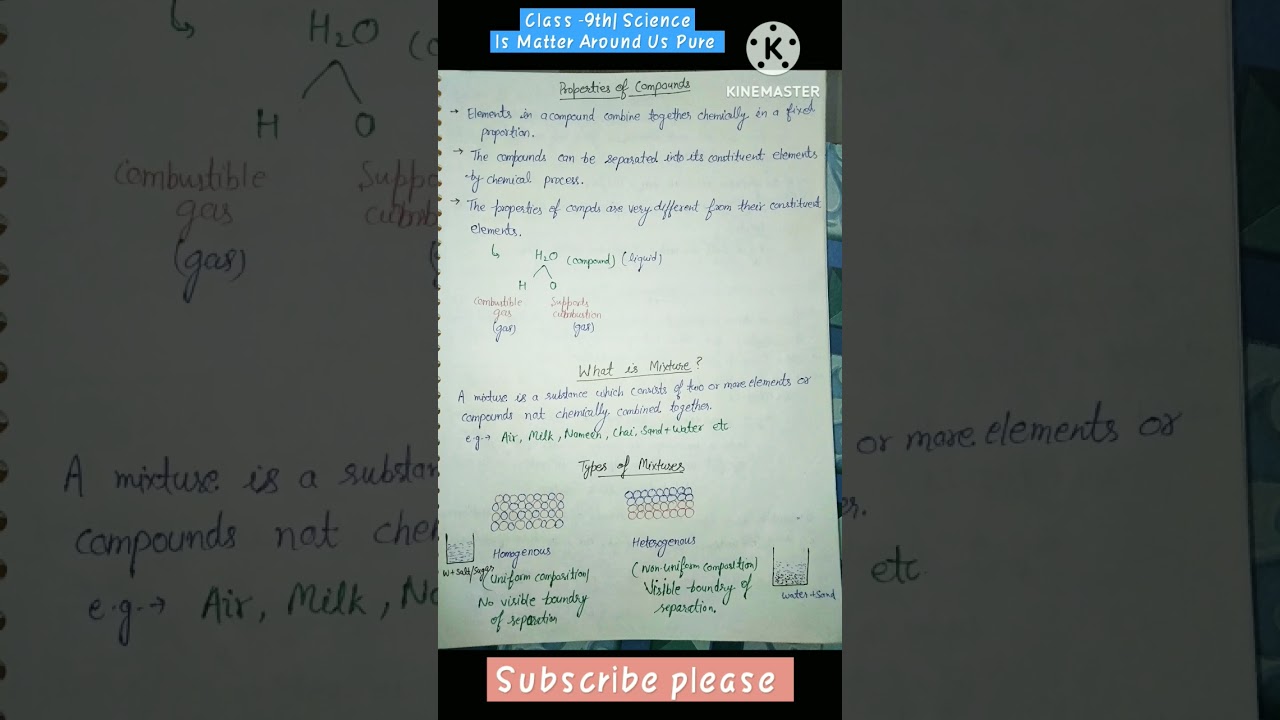 Class -9th| Science
Is Matter Around Us Pure
KINEMASTER
Properties of Compounds
→ Elements in a compound combine together chemically in a fixed
proportion.
→ The compounds can be separated into its constituent elements
by chemical process.
→ The properties of compds are very different from their constituent
elements.
H₂O (compound) (liquid)
H O
Combustible Supports
gas cumbustion
(gas) (gas)
What is Mixture?
A mixture is a substance which consists of two or more elements or
compounds not chemically combined together.
e.g.→ Air, Milk, Nameen, Chai, Sand + Water etc
Types of Mixtures
Homogenous Heterogenous
W + Salt/Sugar
(Uniform composition) (Non-uniform composition)
No visible boundry Visible boundry of
of separation separation.
water + sand
Subscribe please
H₂O
H O
Combustible
gas
(gas)
A mixture is a substan
compounds not che
e.g.→ Air, Milk, Na
or more elements or
etc